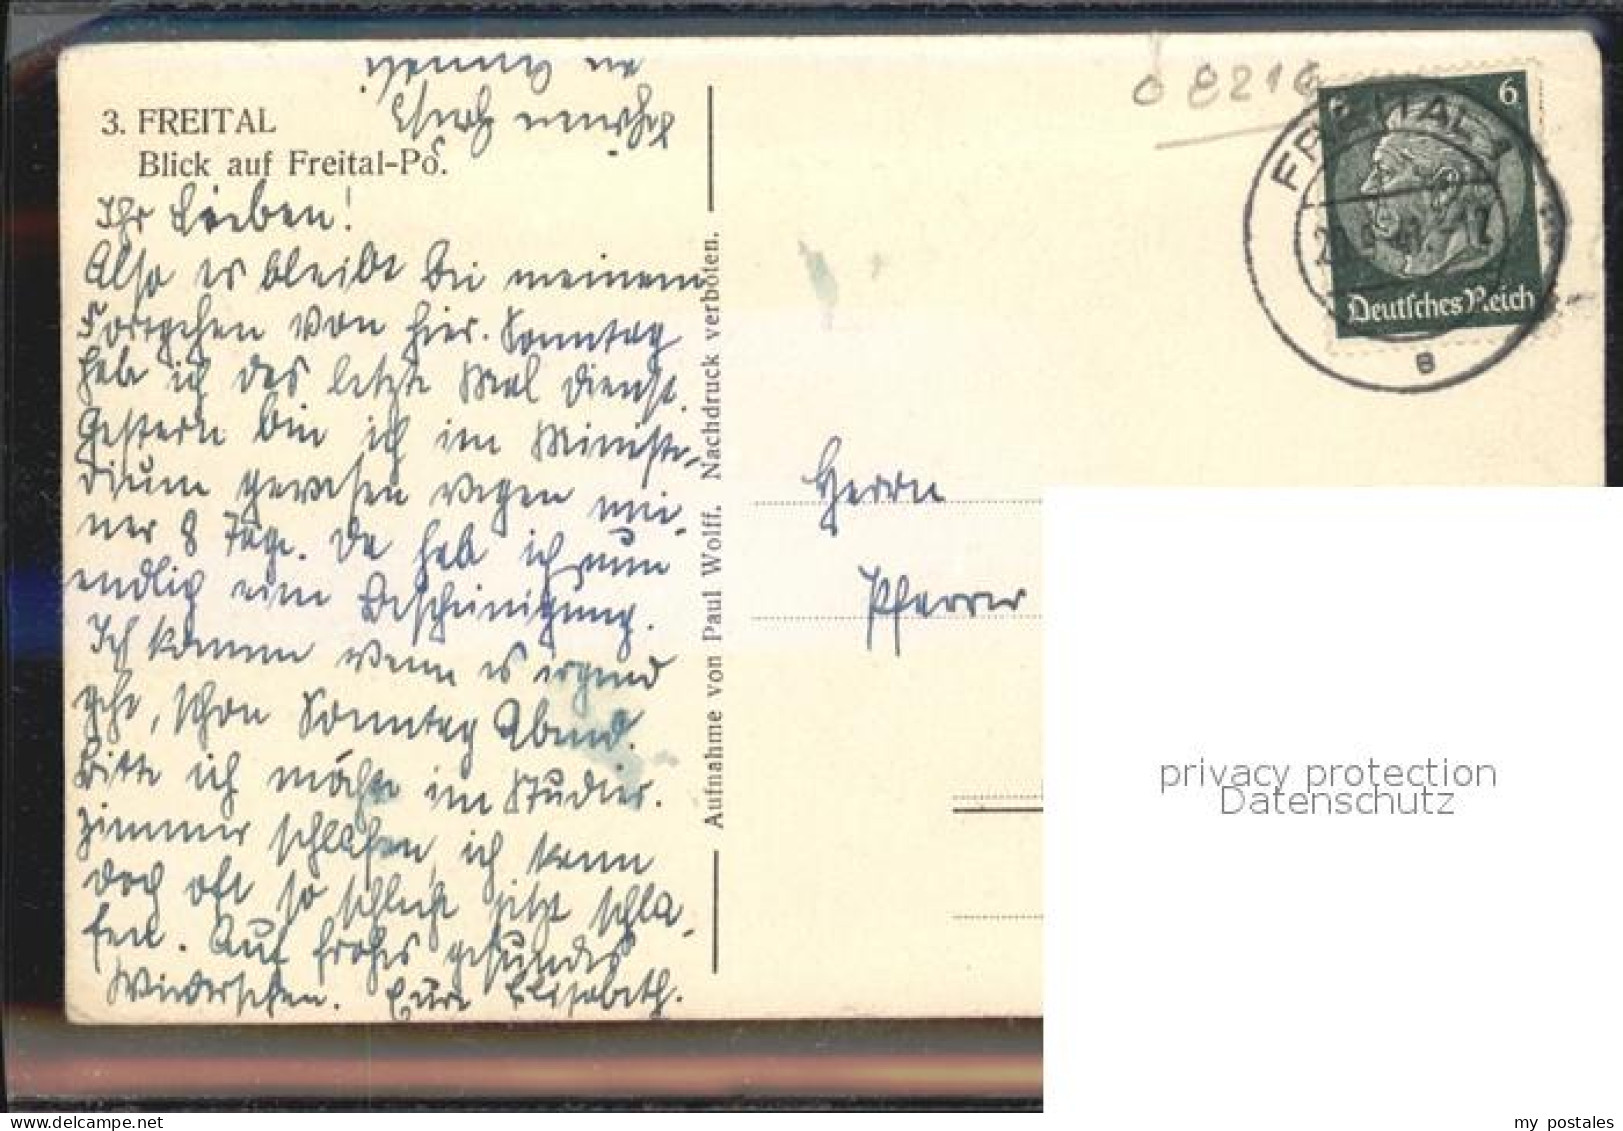 3. FREITAL
Blick auf Freital-Po.
Ihr Lieben!
Also es bleibt bei meinem
Fortgehen von hier. Sonntag
hab ich das letzte Mal Dienst.
Gestern bin ich im Ministe-
rium gewesen wegen mei-
ner 8 Tage. Da hab ich nun
endlich eine Bescheinigung.
Ich komme wenn es irgend
geht, schon Sonntag Abend.
Bitte ich möchte im Studier-
zimmer schlafen, ich kann
doch oft so schlecht jetzt schla-
fen. Auf frohes gesundes
Wiedersehen. Eure Elisabeth.
Aufnahme von Paul Wolff. Nachdruck verboten.
08216
FREITAL 1
6
Deutsches Reich
B
Herrn
Pfarrer
privacy protection
Datenschutz
www.delcampe.net
my_postales